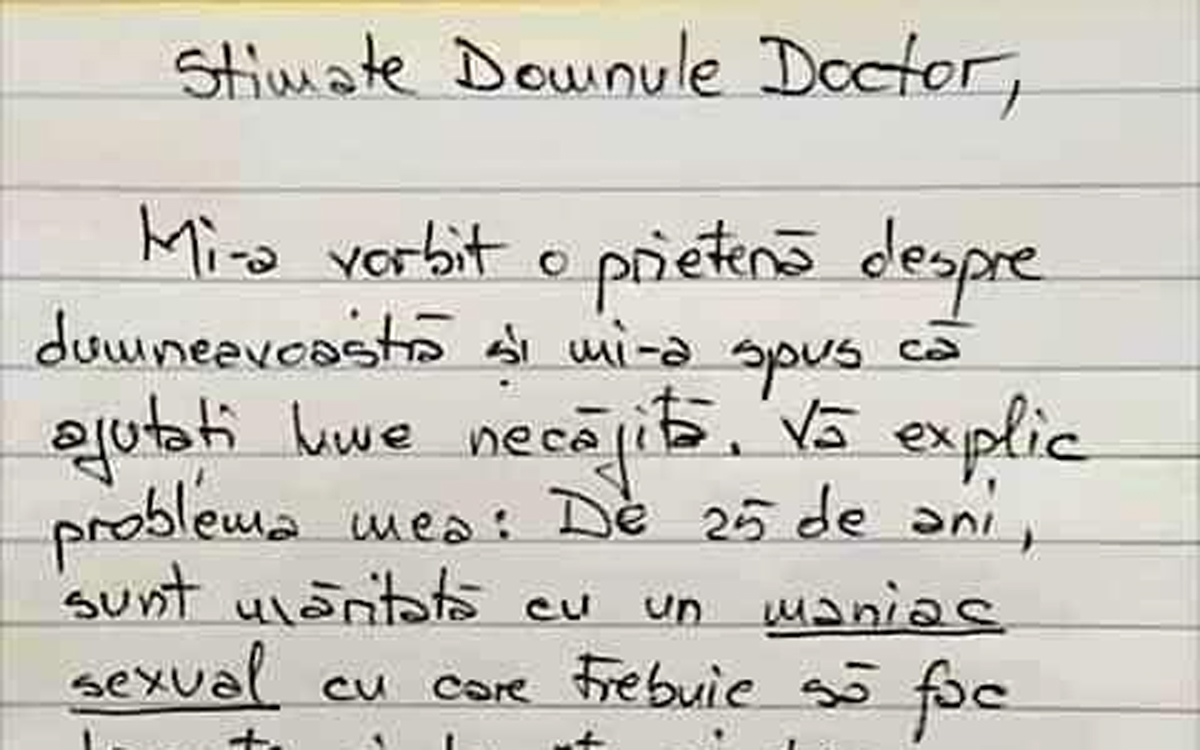 Stimate Domnule Doctor,
Mi-a vorbit o prietenă despre
dumneavoastră și mi-a spus că
ajutati lume necăjită. Vă explic
problema mea: De 25 de ani,
sunt măritată cu un maniac
sexual cu care trebuie să fac